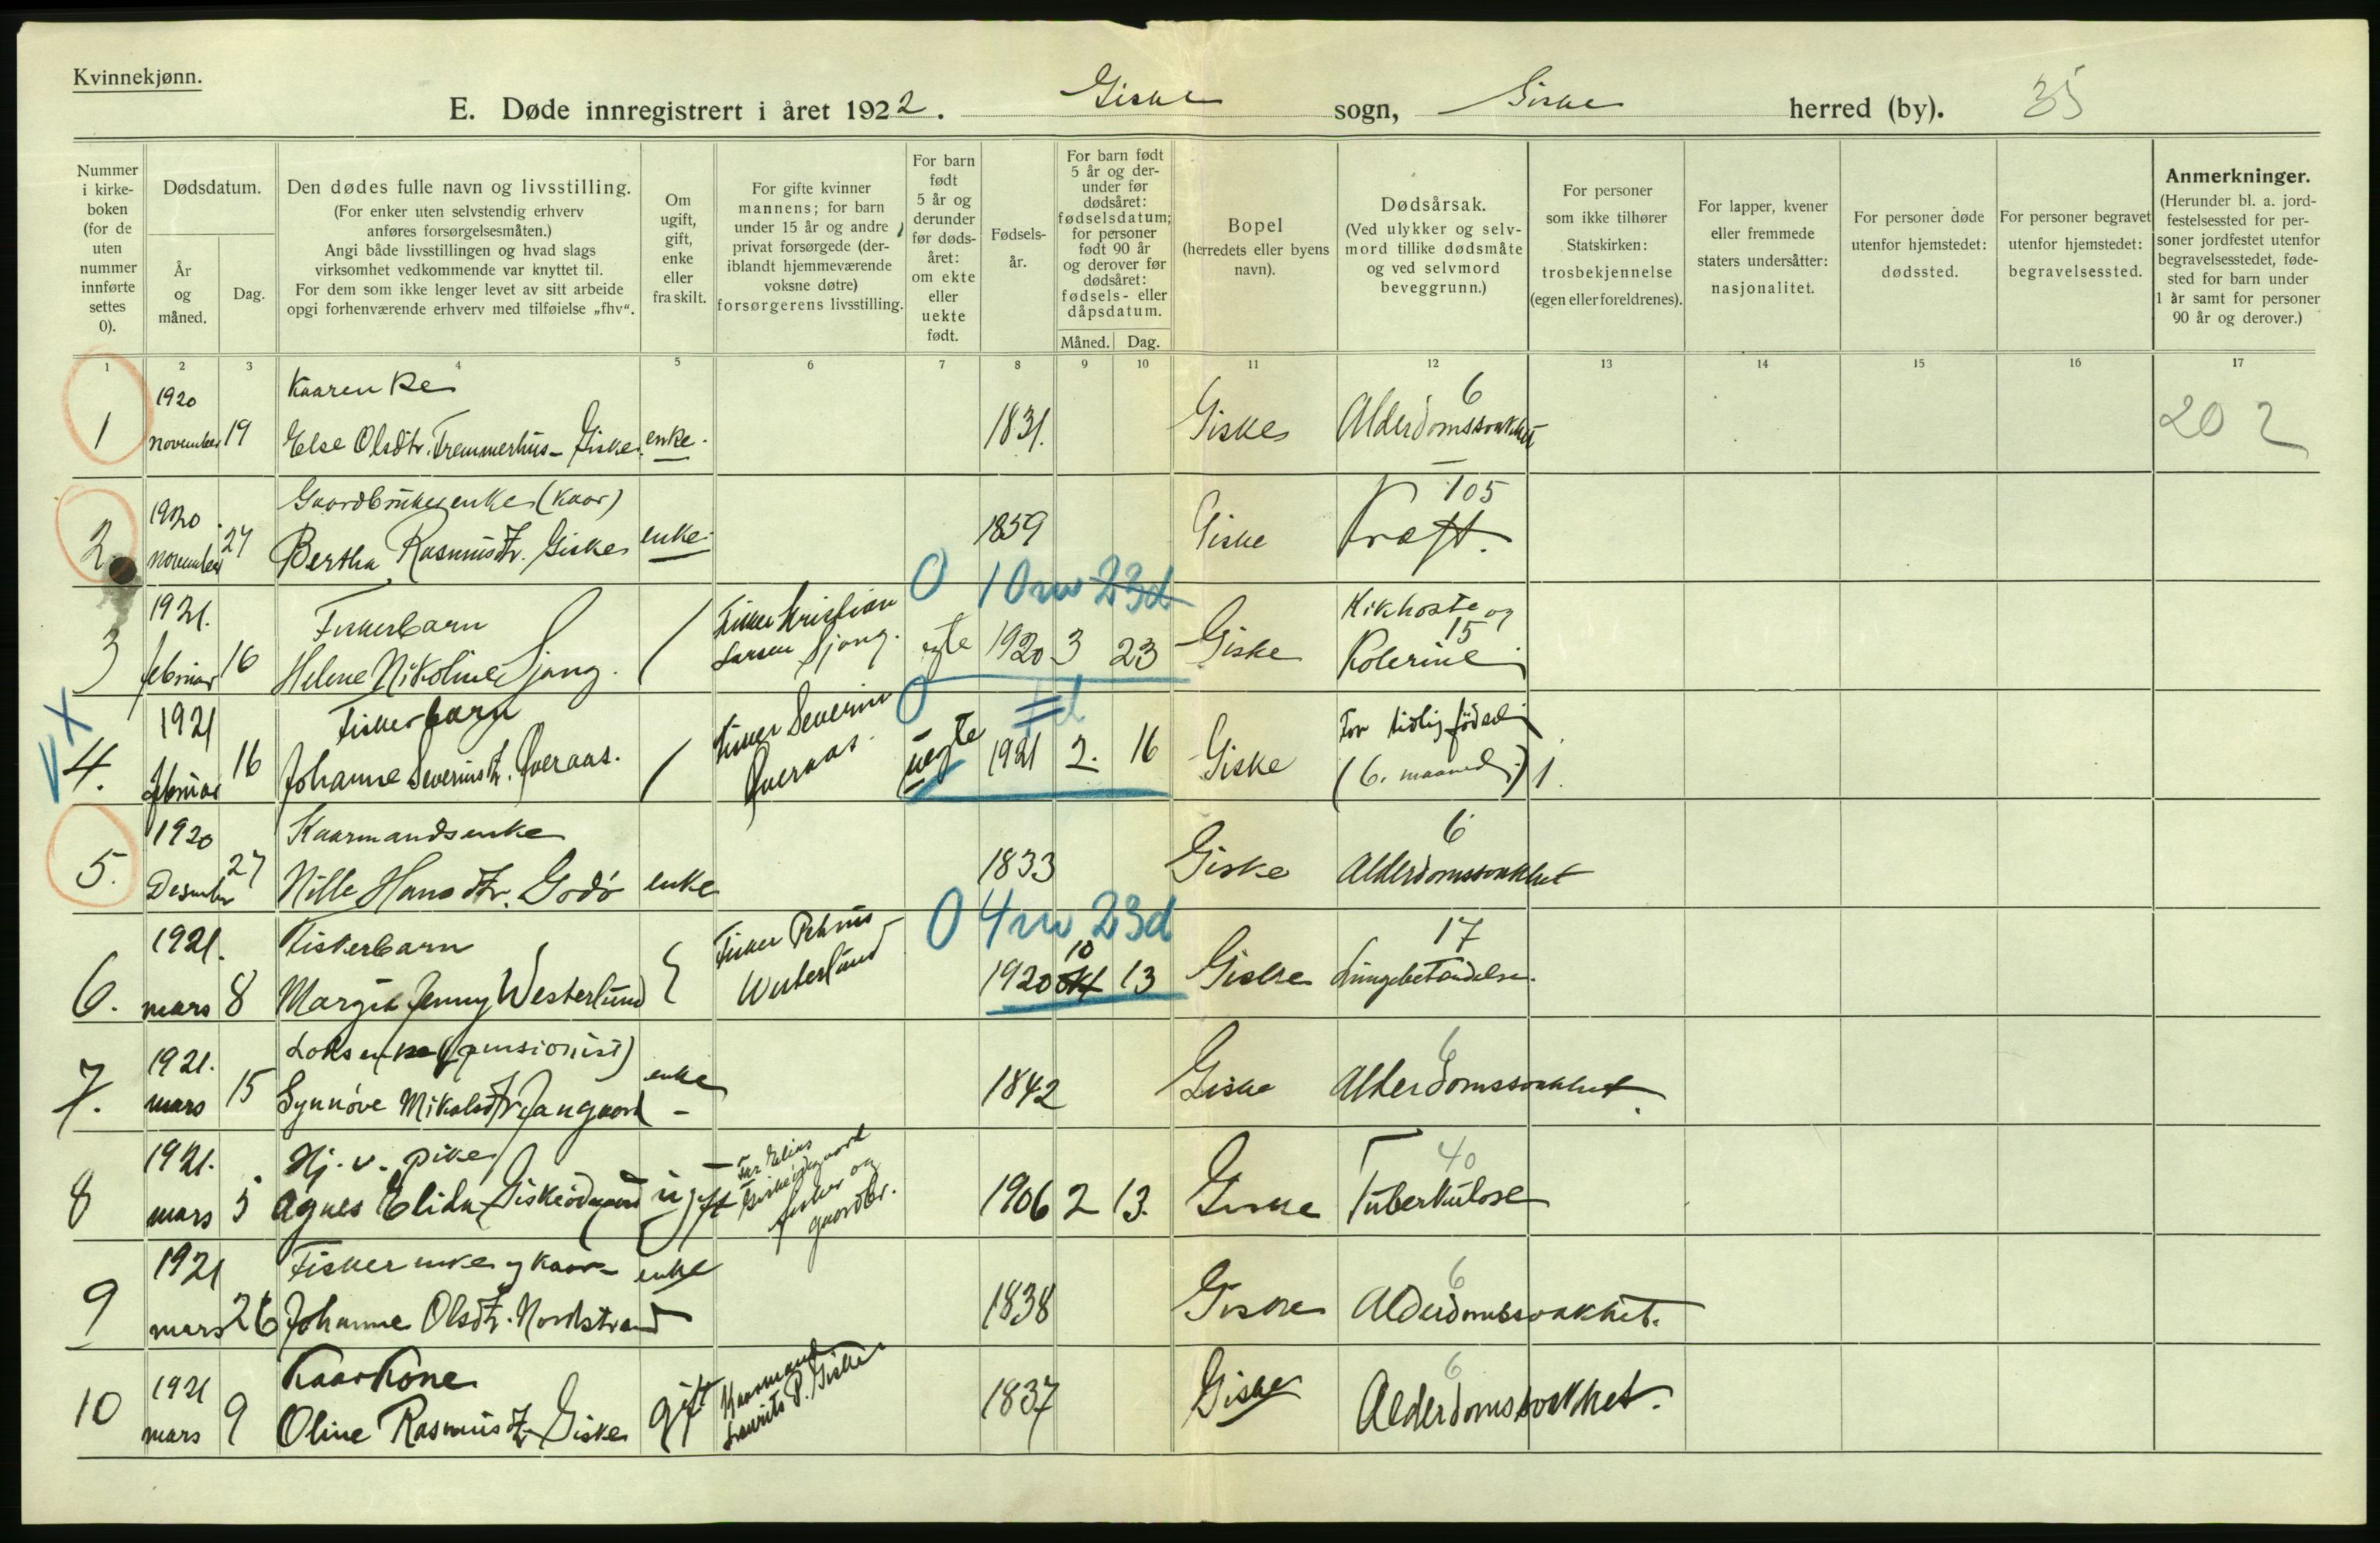 Kvinnekjønn.
E. Døde innregistrert i året 1922. Giske sogn, Giske herred (by). 35
Nummer i kirkeboken (for de uten nummer innførte settes 0).
Dødsdatum.
År og måned.
Dag.
Den dødes fulle navn og livsstilling.
(For enker uten selvstendig erhverv anføres forsørgelsesmåten.)
Angi både livsstillingen og hvad slags virksomhet vedkommende var knyttet til.
For dem som ikke lenger levet av sitt arbeide opgi forhenværende erhverv med tilføielse „fhv“.
Om ugift, gift, enke eller fraskilt.
For gifte kvinner mannens; for barn under 15 år og andre privat forsørgede (deriblandt hjemmeværende voksne døtre) forsørgerens livsstilling.
For barn født 5 år og derunder før dødsåret: om ekte eller uekte født.
Fødselsår.
For barn født 5 år og derunder før dødsåret: fødselsdatum; for personer født 90 år og derover før dødsåret: fødsels- eller dåpsdatum.
Måned. Dag.
Bopel (herredets eller byens navn).
Dødsårsak.
(Ved ulykker og selvmord tillike dødsmåte og ved selvmord beveggrunn.)
For personer som ikke tilhører Statskirken: trosbekjennelse (egen eller foreldrenes).
For lapper, kvener eller fremmede staters undersåtter: nasjonalitet.
For personer døde utenfor hjemstedet: dødssted.
For personer begravet utenfor hjemstedet: begravelsessted.
Anmerkninger.
(Herunder bl. a. jordfestelsessted for personer jordfestet utenfor begravelsesstedet, fødested for barn under 1 år samt for personer 90 år og derover.)
1 2 3 4 5 6 7 8 9 10 11 12 13 14 15 16 17
1920 Kaarenke 6
1 november 19 Else Olsdtr. Fremmerhus-Giske. enke. 1831. Giske Alderdomssvakhet 20 2
1920 Gaardbrukerenke (kaar) 105
2. november 27 Bertha Rasmusdtr. Giske enke. 1859 Giske Kræft.
0 10m 23d
1921. Fiskerbarn Fisker Kristian Kikhoste og
3 februar 16 Helene Nikoline Sjong. / Larsen Sjong. egte 1920 3 23 Giske Kolerine 15
V X 0 1d
1921 Fiskerbarn Fisker Severin For tidlig födsel
4. februar 16 Johanne Severinsdtr. Overaas. / Overaas. uegte 1921 2. 16 Giske (6. maaned) 1.
1920 Kaarmandsenke 6
5. Desember 27 Nille Hansdtr. Godø enke 1833 Giske Alderdomssvakhet
0 4m 23d
1921. Fiskerbarn Fisker 17
6. mars 8 Margit Jenny Westerlund Westerlund 1920 okt 10 13 Giske Lungebetændelse.
1921. (pensionist) 6
7. mars 15 Synnöve Mikalsdtr. enke 1842 Giske Alderdomssvakhet.
1921. Hj. v. pike Far Elias 40
8 mars 5 Agnes Elida Giskeødegaard ugift Giskeødegaard fisker og gaardbr. 1906 2 13. Giske Tuberkulose
1921 Fiskerenke og kaar- enke 6
9 mars 26 Johanne Olsdtr. Nordstrand 1838 Giske Alderdomssvakhet.
1921 Kaarkone Kaarmand 6
10 mars 9 Oline Rasmusdtr. Giske gift Laurits P. Giske 1837 Giske Alderdomssvakhet.